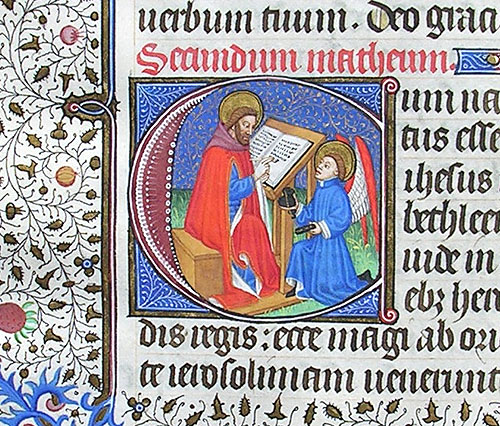 uerbum tuum. Deo graci
Secundum matheum.
um na
tus esse
ihesus
bethlee
iude in
eb; her
dis regis: ecce magi ab ori
te ierosolimam uenerunt